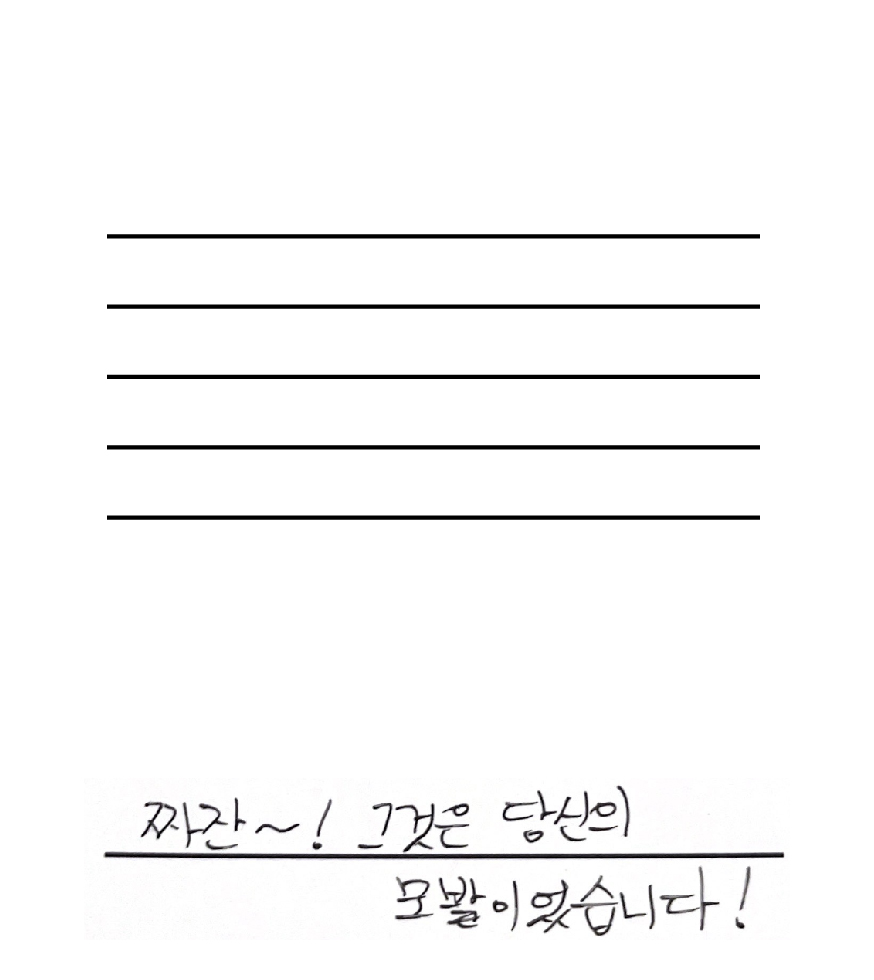 짜잔~! 그것은 당신의
모발이었습니다!